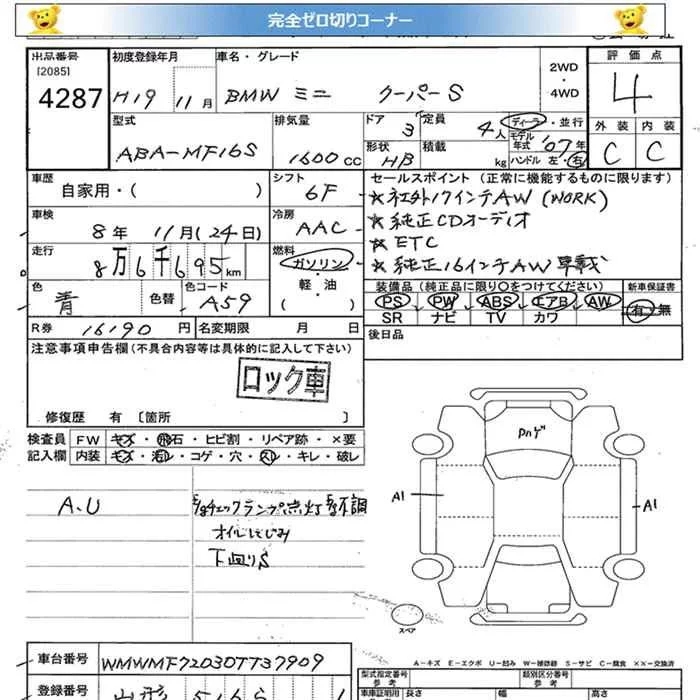 完全ゼロ切りコーナー
出品番号 初度登録年月 車名・グレード 評価点
[2085]
4287 H19 11月 BMW ミニ クーパーS 2WD・4WD 4
型式 排気量 ドア 3 定員 4人 ディーラー・並行 外装 内装
ABA-MF16S 1600cc 形状 HB 積載 kg モデル年式 '07年 ハンドル 左・右 C C
車歴 シフト セールスポイント(正常に機能するものに限ります)
自家用・( ) 6F ☆社外17インチAW (WORK)
車検 冷房 ☆純正CDオーディオ
8年 11月(24日) AAC ☆ETC
走行 燃料 ☆純正16インチAW車載
8万6千695km ガソリン・軽・油( )
色 色替 色コード 装備品(純正品に限り○をつけてください) 新車保証書
青 A59 PS PW ABS エアB AW 有・無
SR ナビ TV カワ
R券 16190円 名変期限 月 日 後日品
注意事項申告欄(不具合内容等は具体的に記入して下さい)
ロック車
修復歴 有〔箇所 〕
検査員 FW キズ・飛石・ヒビ割・リペア跡・×要
記入欄 内装 キズ・汚レ・コゲ・穴・スレ・キレ・破レ
A.U E/gチェックランプ点灯 E/g不調
オイルにじみ
下回りS
A1
A1
スペア
A-キズ E-エクボ U-凹み W-補修跡 S-サビ C-腐食 ××-交換済
車台番号 WMWMF72030TT37909
型式指定番号 類別区分番号
参考 参考
登録番号 山形
車庫証明用 長さ 幅 高さ